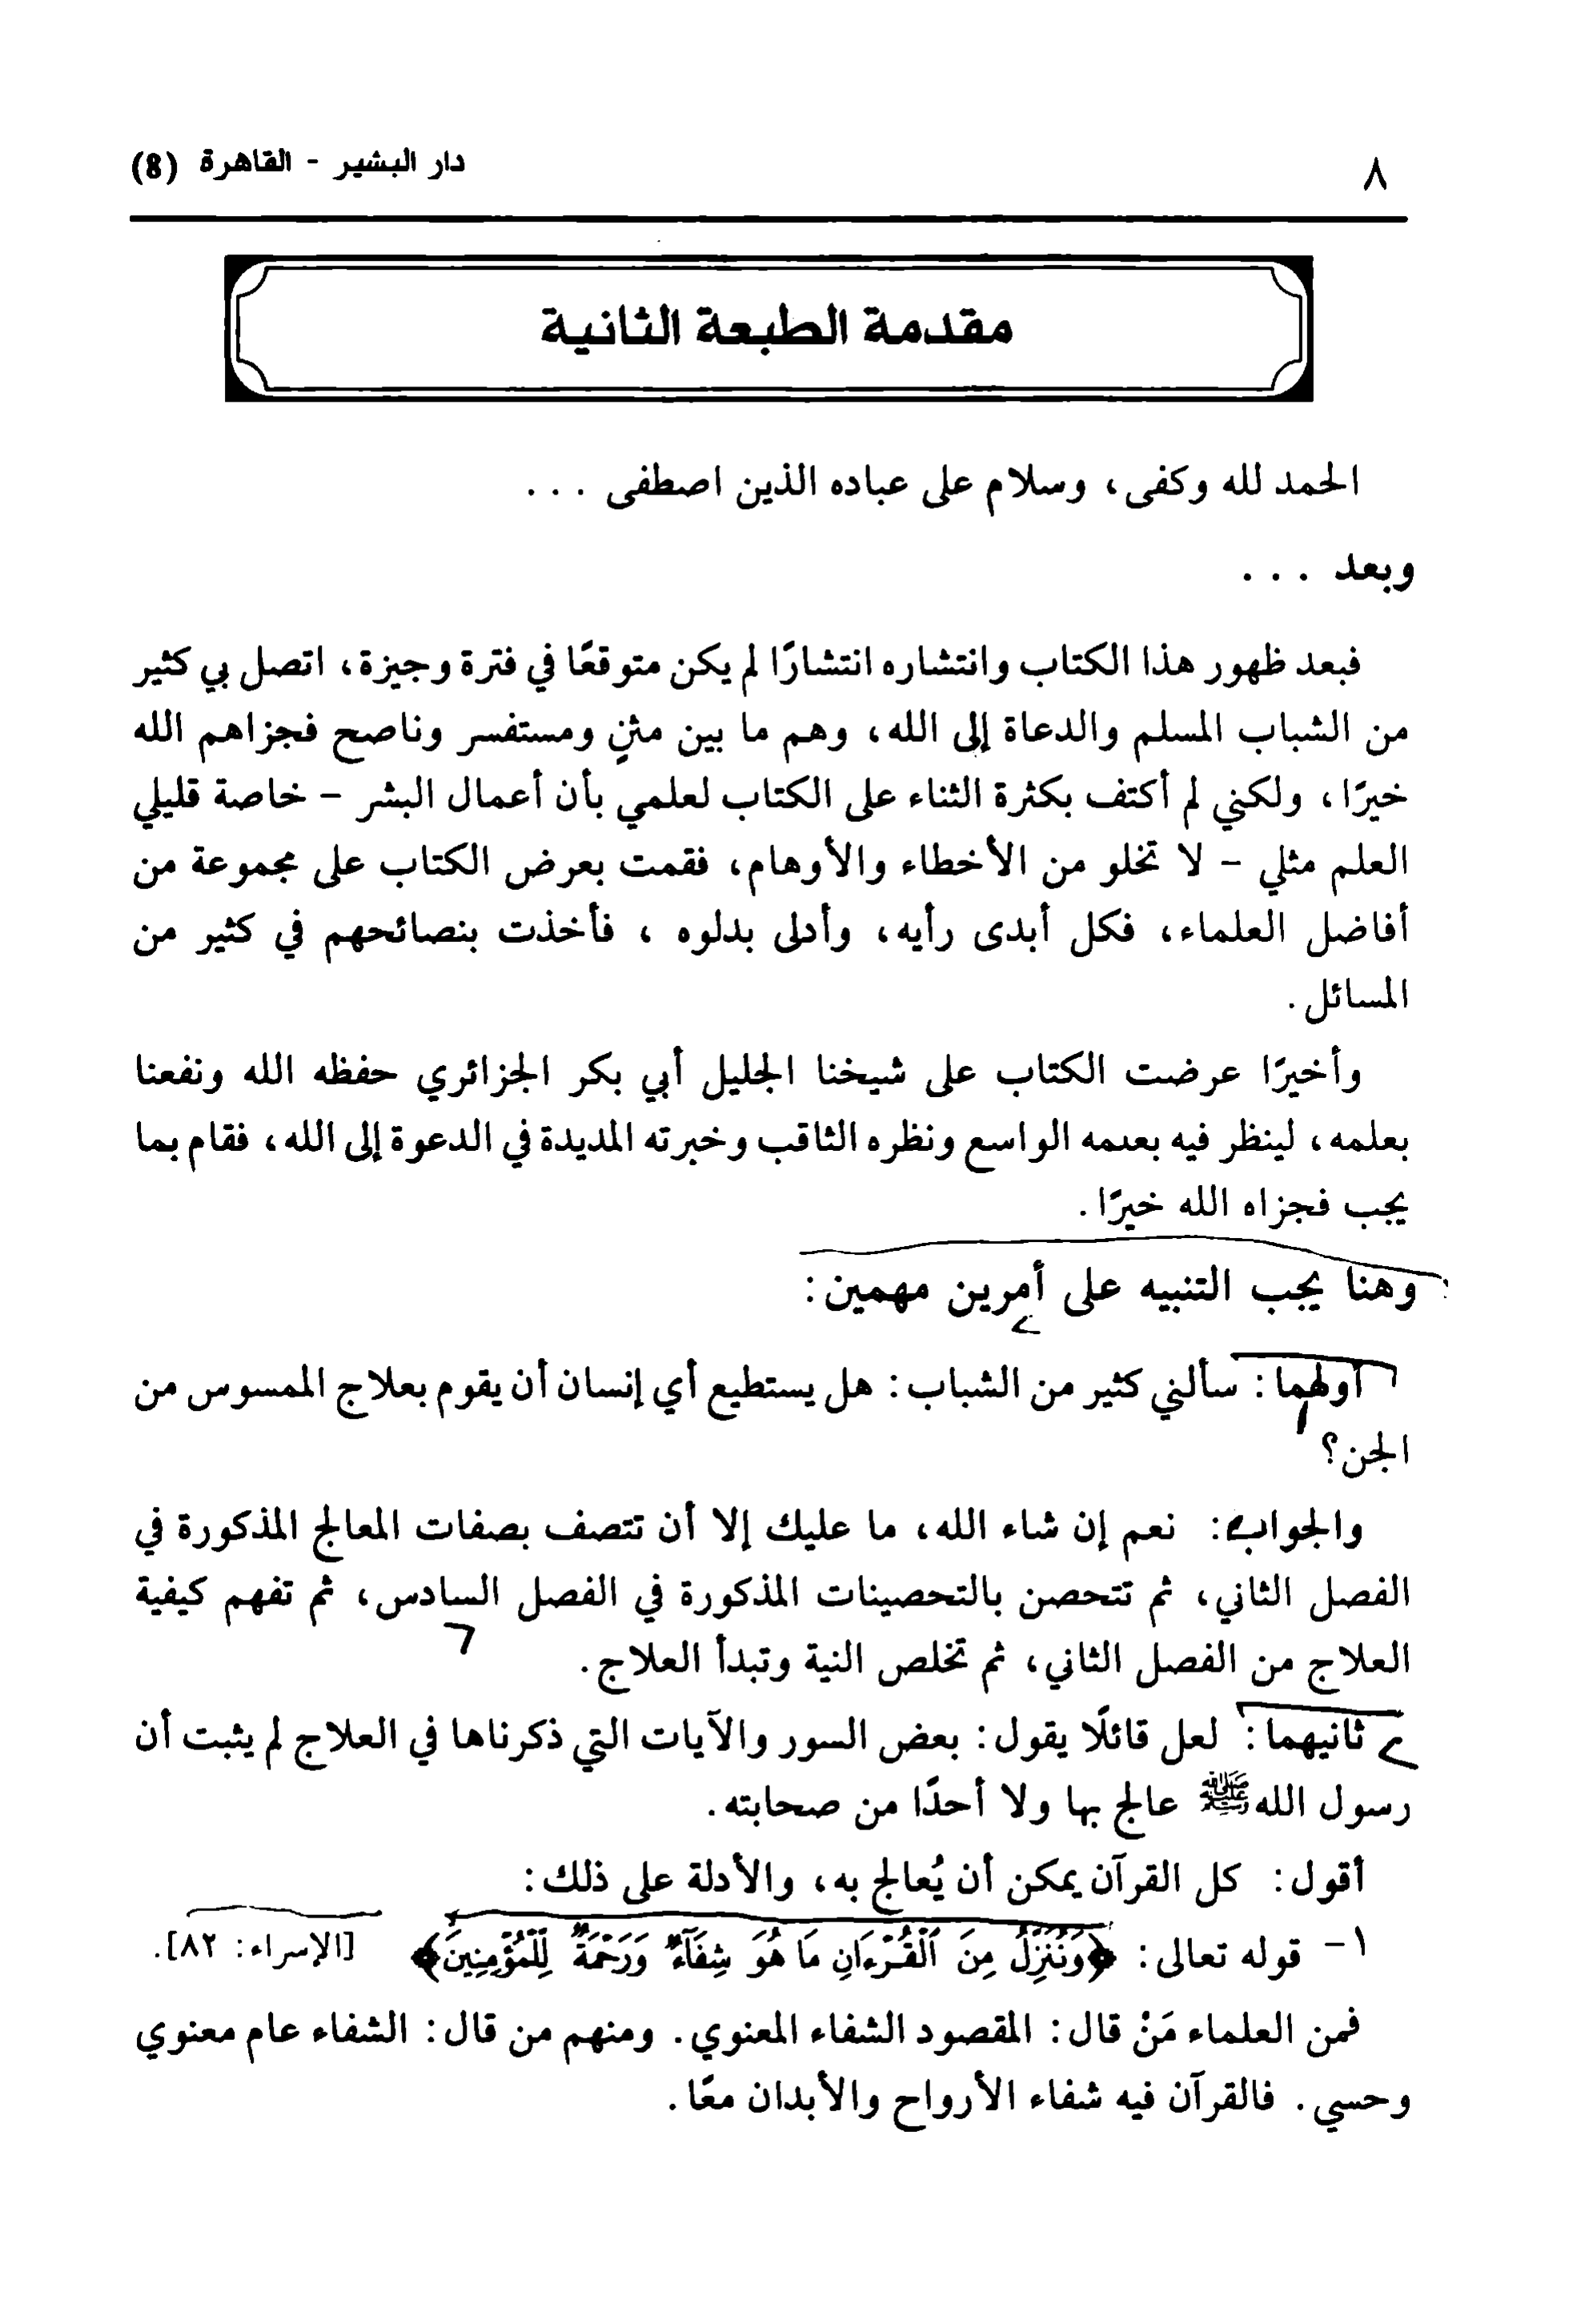 ٨
دار البشير - القاهرة (8)
مقدمة الطبعة الثانية
الحمد لله وكفى، وسلام على عباده الذين اصطفى ...
وبعد ...
فبعد ظهور هذا الكتاب وانتشاره انتشارًا لم يكن متوقعًا في فترة وجيزة، اتصل بي كثير
من الشباب المسلم والدعاة إلى الله، وهم ما بين مثنٍ ومستفسر وناصح فجزاهم الله
خيرًا، ولكني لم أكتف بكثرة الثناء على الكتاب لعلمي بأن أعمال البشر - خاصة قليلي
العلم مثلي - لا تخلو من الأخطاء والأوهام، فقمت بعرض الكتاب على مجموعة من
أفاضل العلماء، فكل أبدى رأيه، وأدلى بدلوه ، فأخذت بنصائحهم في كثير من
المسائل.
وأخيرًا عرضت الكتاب على شيخنا الجليل أبي بكر الجزائري حفظه الله ونفعنا
بعلمه، لينظر فيه بعلمه الواسع ونظره الثاقب وخبرته المديدة في الدعوة إلى الله، فقام بما
يجب فجزاه الله خيرًا.
وهنا يجب التنبيه على أمرين مهمين:
أولهما: سألني كثير من الشباب: هل يستطيع أي إنسان أن يقوم بعلاج الممسوس من
الجن؟
والجواب: نعم إن شاء الله، ما عليك إلا أن تتصف بصفات المعالج المذكورة في
الفصل الثاني، ثم تتحصن بالتحصينات المذكورة في الفصل السادس، ثم تفهم كيفية
العلاج من الفصل الثاني، ثم تخلص النية وتبدأ العلاج.
ثانيهما: لعل قائلًا يقول: بعض السور والآيات التي ذكرناها في العلاج لم يثبت أن
رسول الله ﷺ عالج بها ولا أحدًا من صحابته.
أقول: كل القرآن يمكن أن يُعالج به، والأدلة على ذلك:
١- قوله تعالى: ﴿وَنُنَزِّلُ مِنَ ٱلْقُرْءَانِ مَا هُوَ شِفَآءٌ وَرَحْمَةٌ لِّلْمُؤْمِنِينَ﴾ [الإسراء: ٨٢].
فمن العلماء مَنْ قال: المقصود الشفاء المعنوي. ومنهم من قال: الشفاء عام معنوي
وحسي. فالقرآن فيه شفاء الأرواح والأبدان معًا.